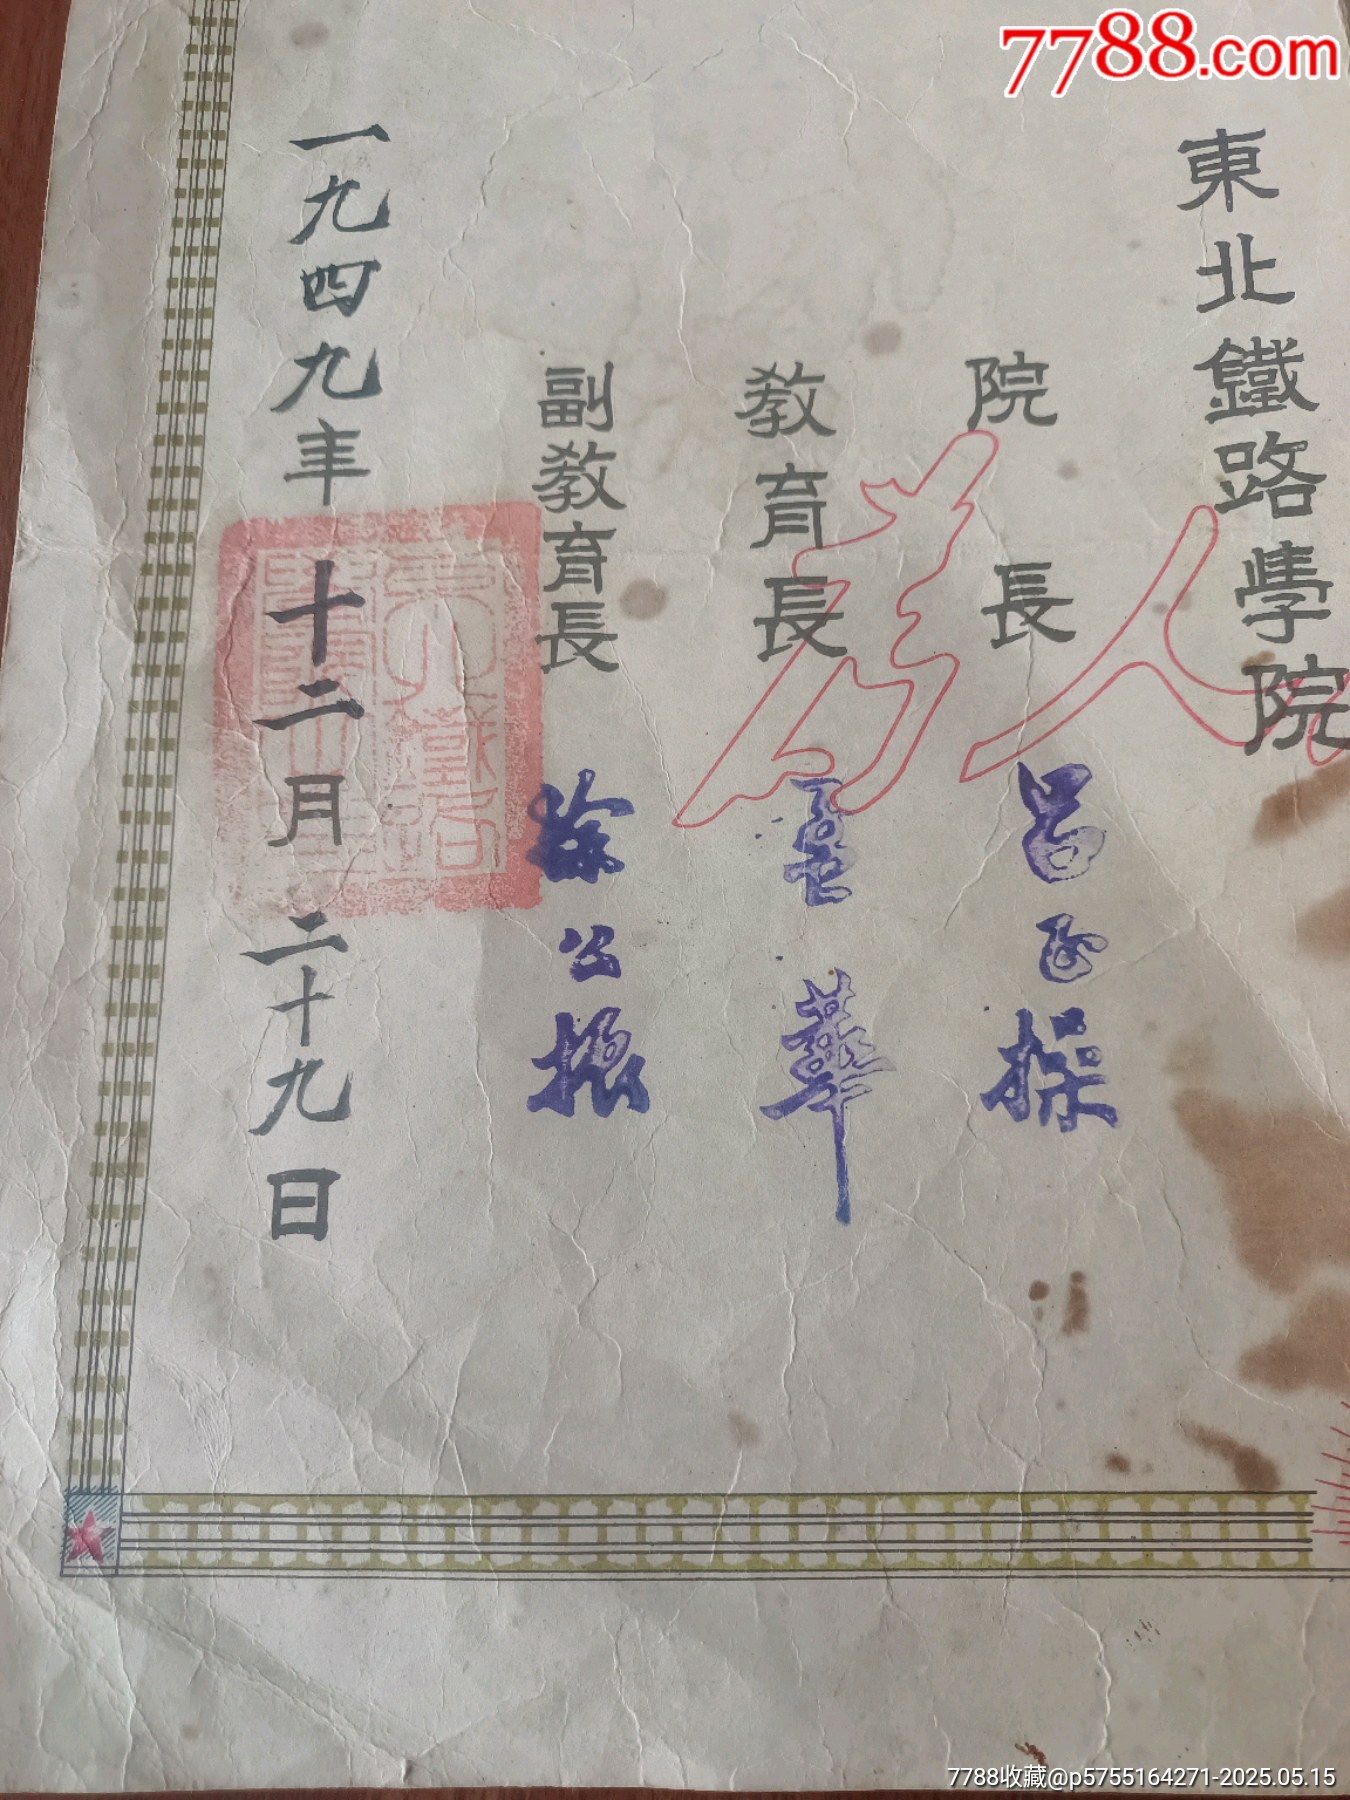 7788.com
東北鐵路學院
院長 呂正操
教育長 華
副教育長 徐公振
一九四九年十二月二十九日
為人
7788收藏@p5755164271-2025.05.15